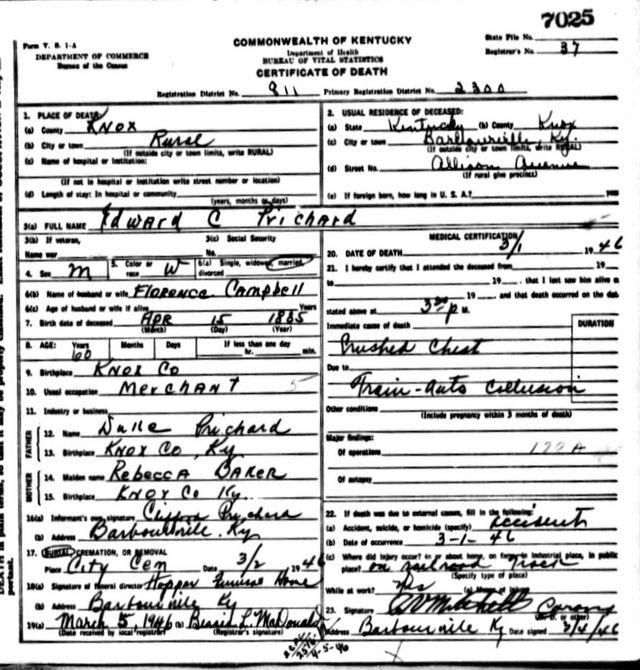 7025
Form V. S. 1-A
COMMONWEALTH OF KENTUCKY
State File No.
DEPARTMENT OF COMMERCE
Bureau of the Census
Department of Health
BUREAU OF VITAL STATISTICS
Registrar's No. 37
CERTIFICATE OF DEATH
Registration District No. 811 Primary Registration District No. 2300
1. PLACE OF DEATH
(a) County Knox
(b) City or town Rural
(If outside city or town limits, write RURAL)
(c) Name of hospital or institution:
(If not in hospital or institution write street number or location)
(d) Length of stay: In hospital or community
(years, months or days)
2. USUAL RESIDENCE OF DECEASED:
(a) State Kentucky (b) County Knox
(c) City or town Barbourville Ky.
(If outside city or town limits, write RURAL)
(d) Street No. Allison Avenue
(If rural give precinct)
(e) If foreign born, how long in U. S. A.?
3(a) FULL NAME Edward C Prichard
3(b) If veteran, Name war
3(c) Social Security No.
4. Sex M 5. Color or race W 6(a) Single, widowed, married, divorced
6(b) Name of husband or wife Florence Campbell
6(c) Age of husband or wife if alive Years
7. Birth date of deceased Apr 15 1885
(Month) (Day) (Year)
8. AGE: Years 60 Months Days If less than one day hr. min.
9. Birthplace Knox Co
10. Usual occupation Merchant 5
11. Industry or business
FATHER
12. Name Prichard
13. Birthplace Knox Co, Ky
MOTHER
14. Maiden name Rebecca Baker
15. Birthplace Knox Co Ky.
16(a) Informant's own signature Prichard
(b) Address Barbourville, Ky
17. BURIAL, CREMATION, OR REMOVAL
Place City Cem Date 3/2 1946
18(a) Signature of funeral director Hopper Funeral Home
(b) Address Barbourville Ky
19(a) March 5, 1946 (b) Bessie L. MacDonald
(Date received by local registrar) (Registrar's signature)
MEDICAL CERTIFICATION
20. DATE OF DEATH 3/1 1946
21. I hereby certify that I attended the deceased from 19
to 19 that I last saw him alive
19 and that death occurred on the date
stated above at 3 P M.
DURATION
Immediate cause of death
Crushed Chest
Due to
Train-Auto Collusion
Other conditions
(Include pregnancy within 3 months of death)
Major findings:
Of operations 170A
Of autopsy
22. If death was due to external causes, fill in the following:
(a) Accident, suicide, or homicide (specify) Accident
(b) Date of occurrence 3-1-46
(c) Where did injury occur? in or about home, on farm, in industrial place, in public place? on railroad track
(Specify type of place)
While at work? (e) Means of injury
23. Signature Mitchell Corony
Address Barbourville Ky Date signed 3/4/46
4-5-46